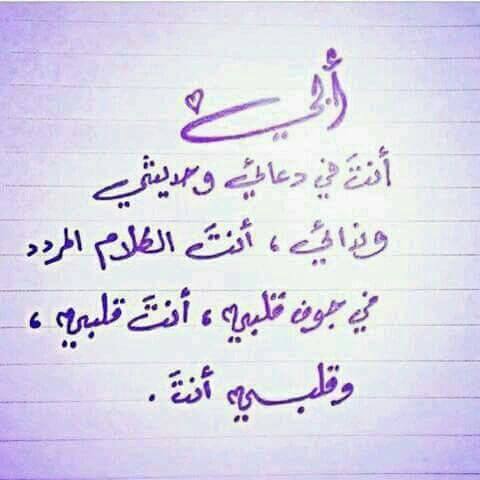 أبي
أنتَ في دعائي وحديثي
وندائي ، أنتَ الكلام المردد
في جوف قلبي ، أنتَ قلبي ،
وقلبي أنتَ .